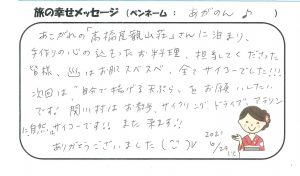 旅の幸せメッセージ (ペンネーム: あがのん♪)
あこがれの「高橋屋観山荘」さんに泊まり、
手作りの心の込もったお料理、担当してくださった
皆様、♨はお肌スベスベ、全てサイコーでした!!!
次回は"自分で揚げる天ぷら"をお願いしたい
です♪ 関川村はお散歩、サイクリング、ドライブ、
に自然サイコーです!! また来ます♪♪
ありがとうございました(^-^)v
2021
6/29